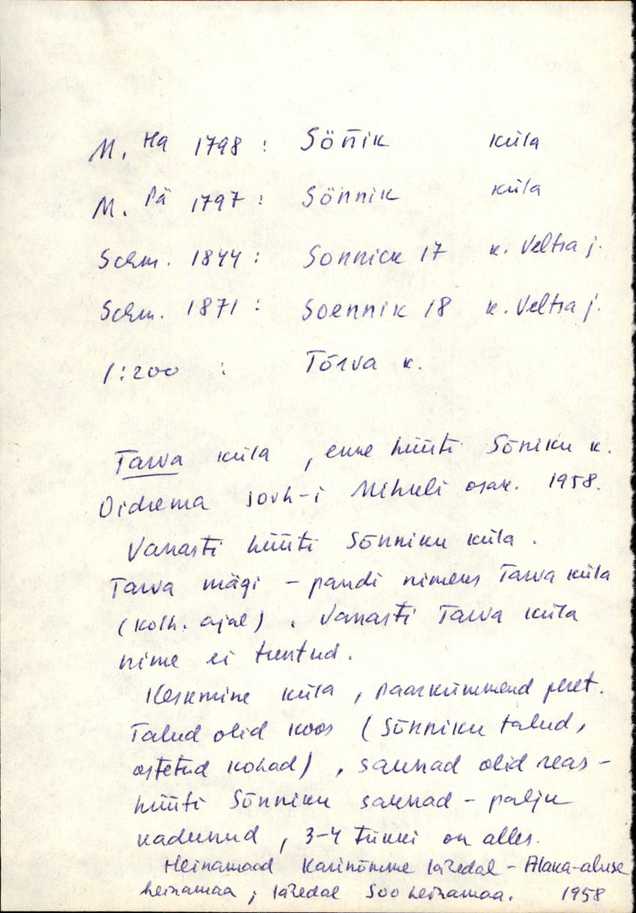 M. Ha 1798 : Sön̄ik küla
M. Pä 1797 : Sönnik küla
Schm. 1844 : Sonnick 17 k. Veltsa j.
Schm. 1871 : Soennik 18 k. Veltsa j.
1:200 : Tõrva k.
Tarva küla, enne hüüti Sõniku k.
Oidrema sovh-i Mihuli osak. 1958.
Vanasti hüüti Sõnniku küla.
Tarva mägi - pandi nimeks Tarva küla
(kolh. ajal). Vanasti Tarva küla
nime ei tuntud.
Keskmine küla, paarkümmend peret.
Talud olid koos (Sõnniku talud,
ostetud kohad), saunad olid reas -
hüüti Sõnniku saunad - palju
kadunud, 3-4 tükki on alles.
Heinamaad Karinõmme lähedal -
heinamaa, lähedal Soo heinamaa. 1958